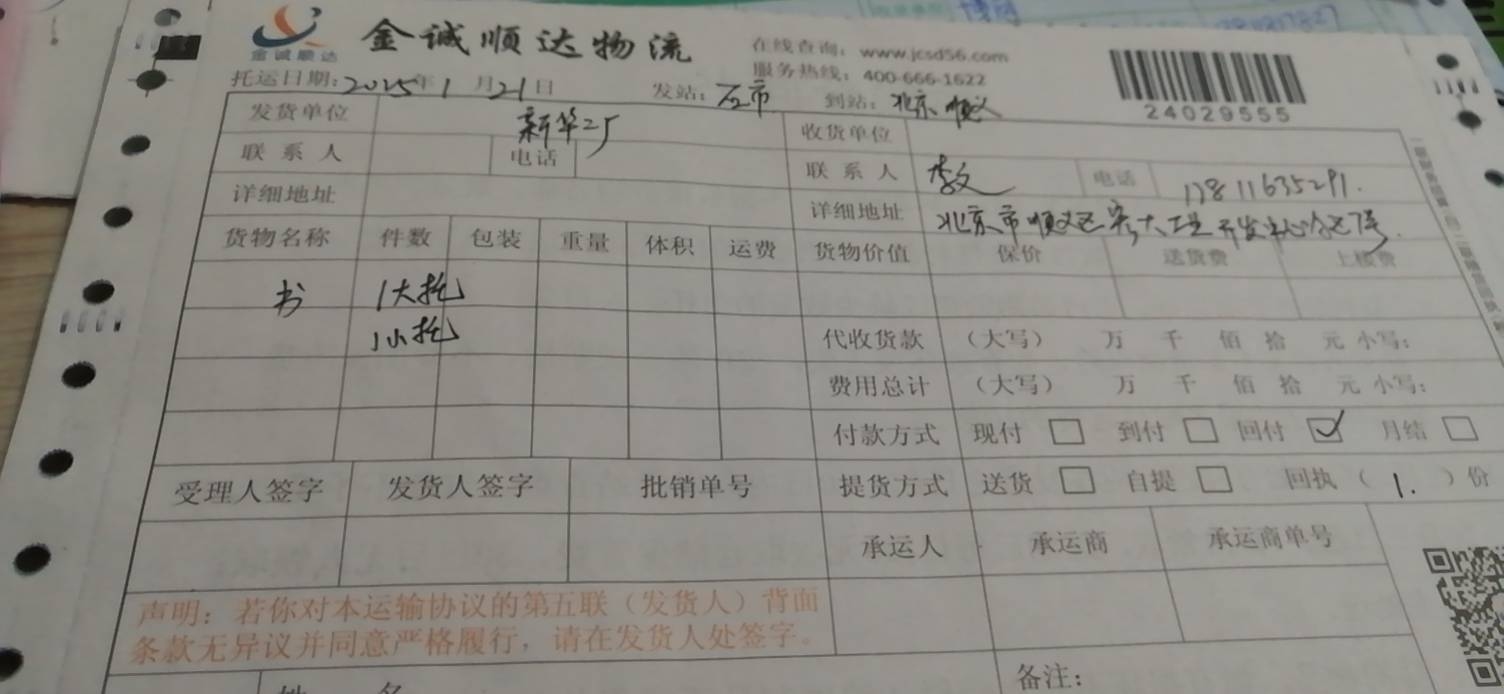 金诚顺达
金诚顺达物流
在线查询：www.jcsd56.com
服务热线：400-666-1622
24029555
托运日期：2025年1月21日 发站：石市 到站：北京顺义
发货单位 新华二厂 收货单位
联系人 电话 联系人 李文 电话 17811635291.
详细地址 详细地址 北京市顺义区
货物名称 件数 包装 重量 体积 运费 货物价值 保价 送货费 上楼费
书 1大托
1小托 代收货款 （大写） 万 千 佰 拾 元 小写：
费用总计 （大写） 万 千 佰 拾 元 小写：
付款方式 现付 到付 回付 ✓ 月结
受理人签字 发货人签字 批销单号 提货方式 送货 自提 回执（1.）份
承运人 承运商 承运商单号
声明：若你对本运输协议的第五联（发货人）背面
条款无异议并同意严格履行，请在发货人处签字。
备注：